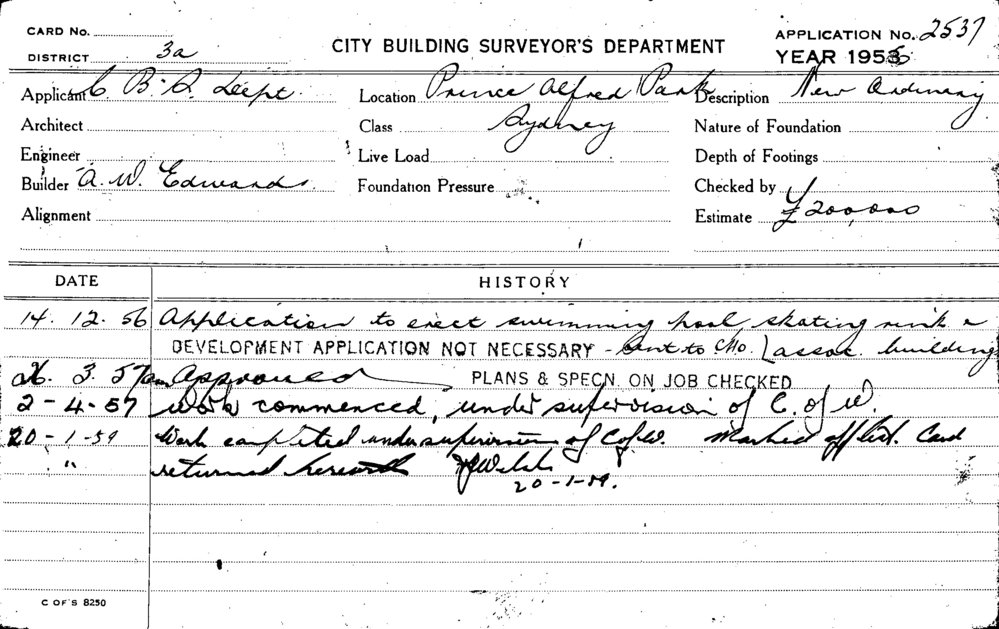 CARD No.
CITY BUILDING SURVEYOR'S DEPARTMENT
APPLICATION No. 2537
DISTRICT 3a
YEAR 1956
Applicant C. B. S. Dept.
Location Prince Alfred Park
Description New Ordinary
Architect
Class Sydney
Nature of Foundation
Engineer
Live Load
Depth of Footings
Builder A. W. Edwards.
Foundation Pressure
Checked by
Alignment
Estimate £200,000
DATE HISTORY
14. 12. 56 Application to erect swimming pool skating rink &
DEVELOPMENT APPLICATION NOT NECESSARY - Sent to CHO. assoc. building
26. 3. 57 Approved PLANS & SPECN. ON JOB CHECKED
2-4-57 Work commenced, under supervision of C. of W.
20-1-59 Work completed under supervision of C of W. Marked off list. Card
" returned herewith
20-1-59.
C OF S 8250